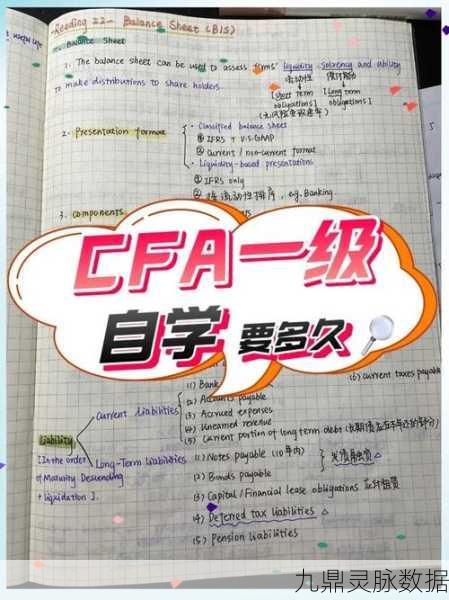 Reading 22- Balance Sheet (B/S)
Balance Sheet
1. The balance sheet can be used to assess firms' liquidity solvency and ability
流动性 偿付能力
to make distributions to share holders.
[Short term [Long term
obligations] obligations]
Classified balance sheet
① IFRS + U.S. GAAP
2. Presentation format
② Current / non-current format
Liquidity-based presentations
① IFRS only
② 按流动性排序, eg. Banking
3. components
CFA一级
自学要多久
(1) Bank
(6) current taxes payable
(2) Accounts payable
Current Liabilities
(3) Accrued expenses
(4) Unearned revenue
(5) Current portion of long term debt
Liability
[In the order
Long-Term Liabilities
(1) Notes payable (10年内)
of Maturity Descending
(2) Bonds payable
+ liquidation].
(3) Capital / Financial lease obligations 应付租赁
(4) Deferred tax liabilities △
(5) Pension liabilities
九鼎灵脉数据